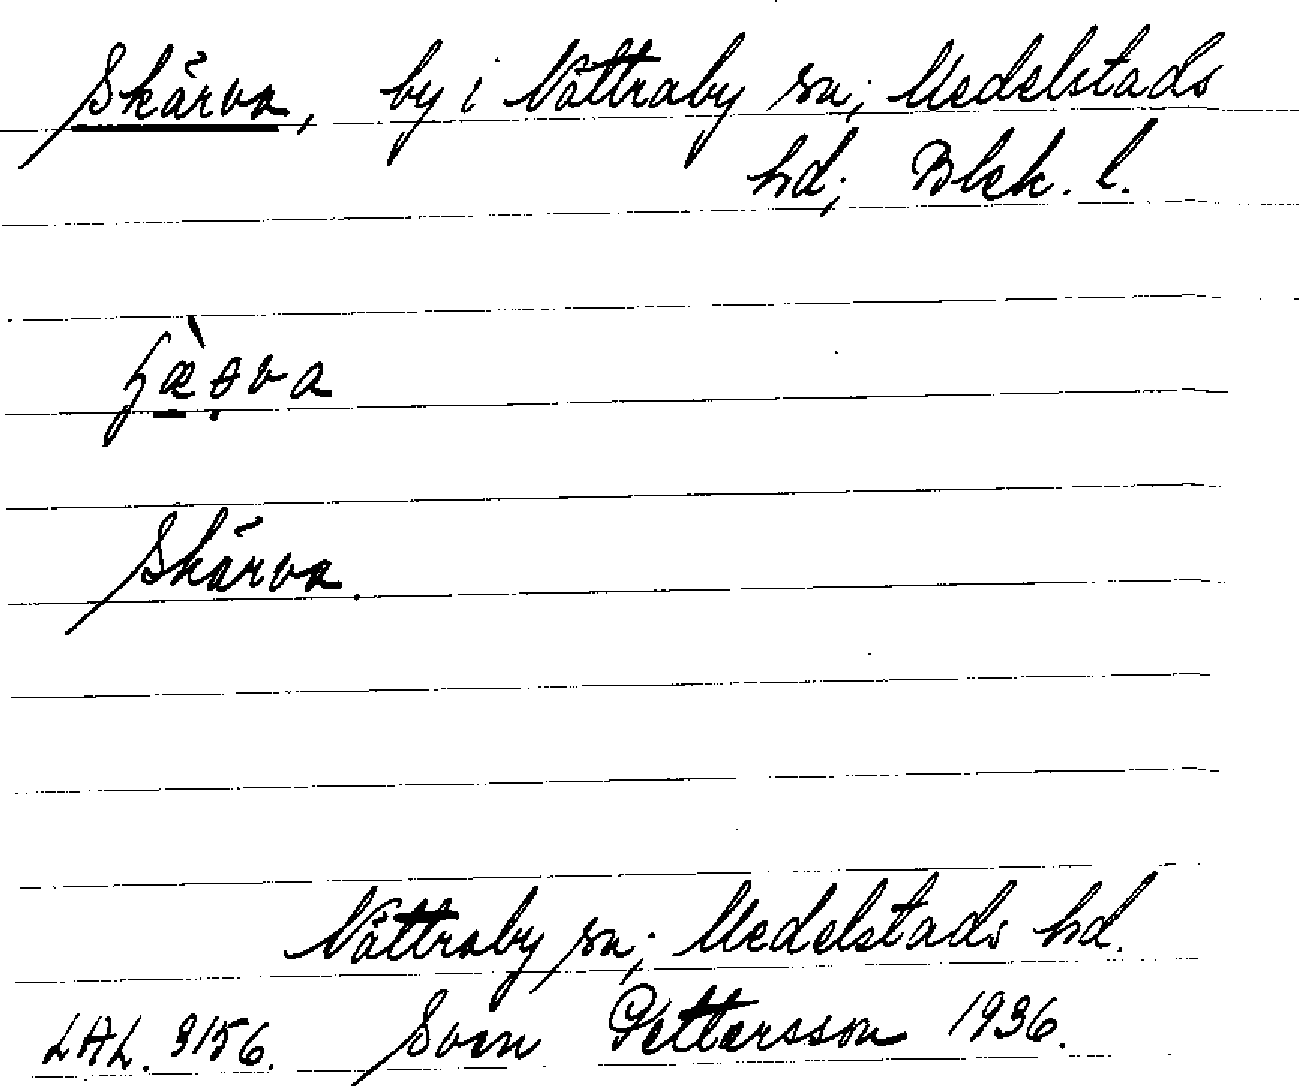 Skärva, by i Nättraby sn; Medelstads
hd; Blek. l.
Skärva.
Nättraby sn; Medelstads hd.
LAL. 3156. Sven Pettersson 1936.